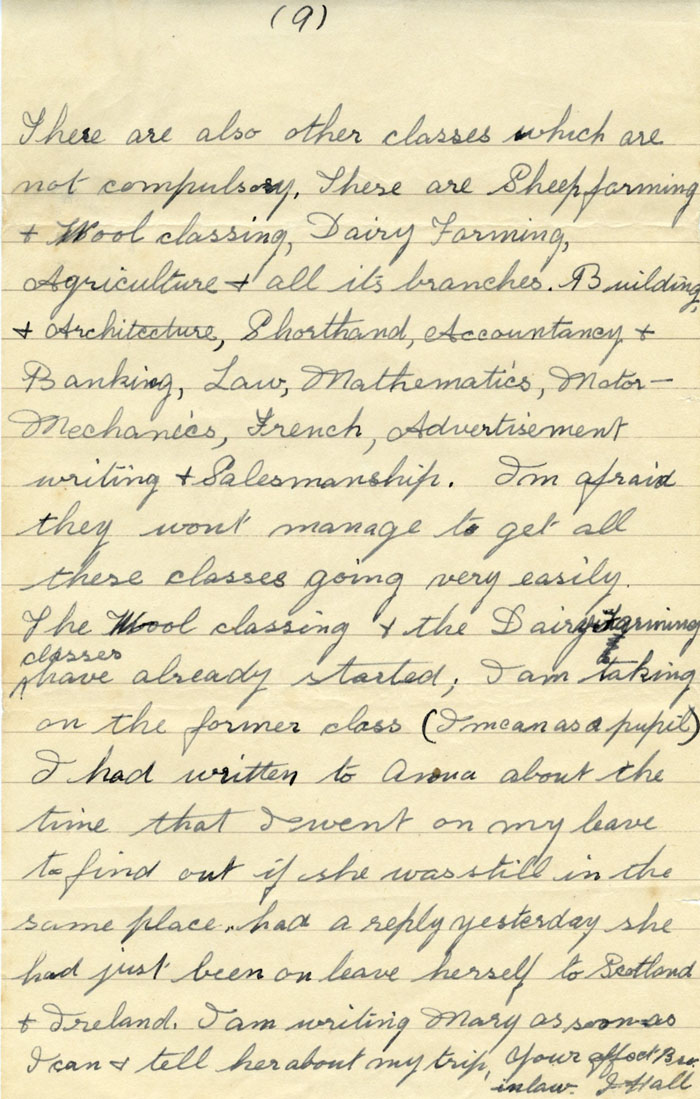 (9)
There are also other classes which are
not compulsory. There are Sheepfarming
+ Wool classing, Dairy Farming,
Agriculture + all its branches. Building,
+ Architecture, Shorthand, Accountancy +
Banking, Law, Mathematics, Motor-
Mechanics, French, Advertisement
writing + Salesmanship. I'm afraid
they wont manage to get all
these classes going very easily.
The Wool classing + the Dairy farming
classes
have already started; I am taking
on the former class (I mean as a pupil)
I had written to Anna about the
time that I went on my leave
to find out if she was still in the
same place. had a reply yesterday she
had just been on leave herself to Scotland
+ Ireland. I am writing Mary as soon as
I can + tell her about my trip, Your affect Bro.
inlaw. J Hall